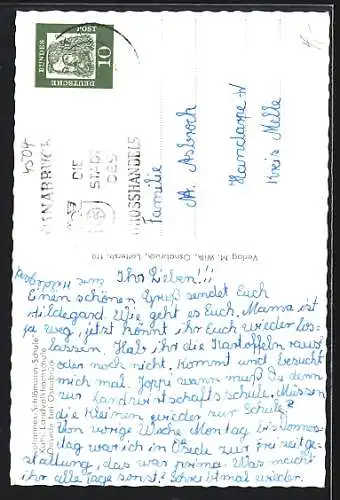 4504
DEUTSCHE
BUNDES
POST
10
OSNABRÜCK
DIE
STADT
DES
GROSSHANDELS
Familie
A. Asbrock
Handarpe
Kreis Melle
Verlag M. Wilk, Osnabrück, Lotterstr. 110
Johannes-Schlömann-Schule
Kath. Landvolkheimschule
Oesede bei Osnabrück
Ihr Lieben!!
Einen schönen Gruß sendet Euch
Hildegard. Wie geht es Euch. Mama ist
ja weg, jetzt könnt ihr Euch wieder los-
lassen. Hab ihr die Kartoffeln raus
oder noch nicht. Kommt und besucht
mich mal. Joppi wann mußt Du denn
zur Landwirtschaftsschule. Müssen
die Kleinen wieder zur Schule?
Von vorige Woche Montag bis Donners-
dag war ich in Oesede zur Freizeitge-
staltung, das war prima. Was macht
ihr alle Tage sonst? Schreibt mal wieder.
Eure Hildegard